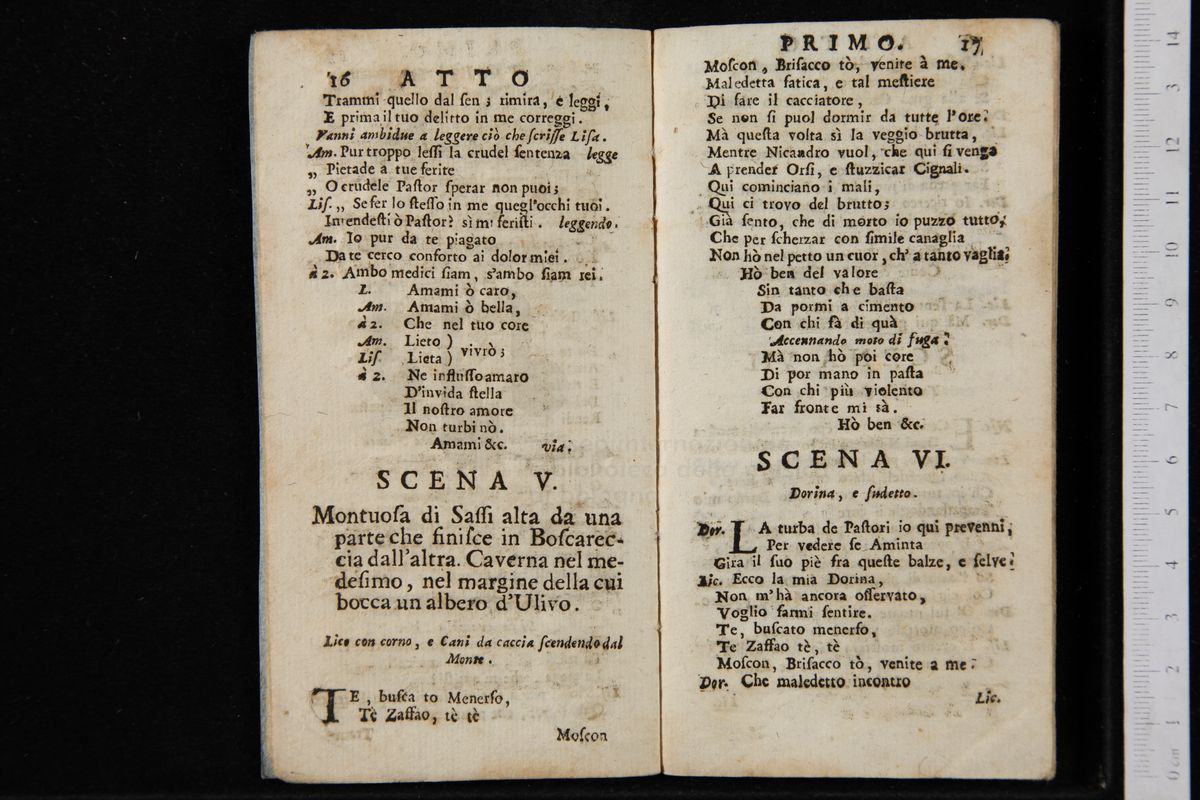 16 ATTO
Trammi quello dal ſen; rimira, e leggi,
E prima il tuo delitto in me correggi.
Vanni ambidue a leggere ciò che ſcriſſe Liſa.
Am. Pur troppo leſſi la crudel ſentenza legge
„ Pietade a tue ferite
„ O crudele Paſtor ſperar non puoi;
Liſ. „ Se fer lo ſteſſo in me quegl'occhi tuoi.
Intendeſti ò Paſtor? sì mi feriſti. leggendo.
Am. Io pur da te piagato
Da te cerco conforto ai dolor miei.
à 2. Ambo medici ſiam, s'ambo ſiam rei.
L. Amami ò caro,
Am. Amami ò bella,
à 2. Che nel tuo core
Am. Lieto )
vivrò;
Liſ. Lieta )
à 2. Ne influſſo amaro
D'invida ſtella
Il noſtro amore
Non turbi nò.
Amami &c. via.
SCENA V.
Montuoſa di Saſſi alta da una
parte che finiſce in Boſcarec-
cia dall'altra. Caverna nel me-
deſimo, nel margine della cui
bocca un albero d'Ulivo.
Lico con corno, e Cani da caccia ſcendendo dal
Monte.
TE, buſca to Menerſo,
Tè Zaffao, tè tè
Moſcon
PRIMO. 17
Moſcon, Briſacco tò, venite à me.
Maledetta fatica, e tal meſtiere
Di fare il cacciatore,
Se non ſi puol dormir da tutte l'ore.
Mà queſta volta sì la veggio brutta,
Mentre Nicandro vuol, che qui ſi venga
A prender Orſi, e ſtuzzicar Cignali.
Qui cominciano i mali,
Qui ci trovo del brutto;
Già ſento, che di morto io puzzo tutto,
Che per ſcherzar con ſimile canaglia
Non hò nel petto un cuor, ch'a tanto vaglia.
Hò ben del valore
Sin tanto che baſta
Da pormi a cimento
Con chi fà di quà
Accennando moto di fuga.
Mà non hò poi core
Di por mano in paſta
Con chi più violento
Far fronte mi sà.
Hò ben &c.
SCENA VI.
Dorina, e ſudetto.
Dor. LA turba de Paſtori io qui prevenni,
Per vedere ſe Aminta
Gira il ſuo piè fra queſte balze, e ſelve.
Lic. Ecco la mia Dorina,
Non m'hà ancora oſſervato,
Voglio farmi ſentire.
Te, buſcato menerſo,
Te Zaffao tè, tè
Moſcon, Briſacco tò, venite a me.
Dor. Che maledetto incontro
Lic.
14
13
12
11
10
9
8
7
6
5
4
3
2
1
0 cm